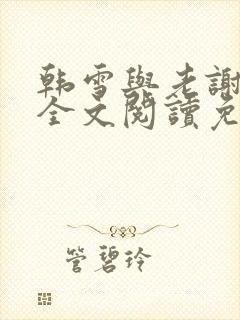 韩雪與老謝
全文閱讀免
管碧玲